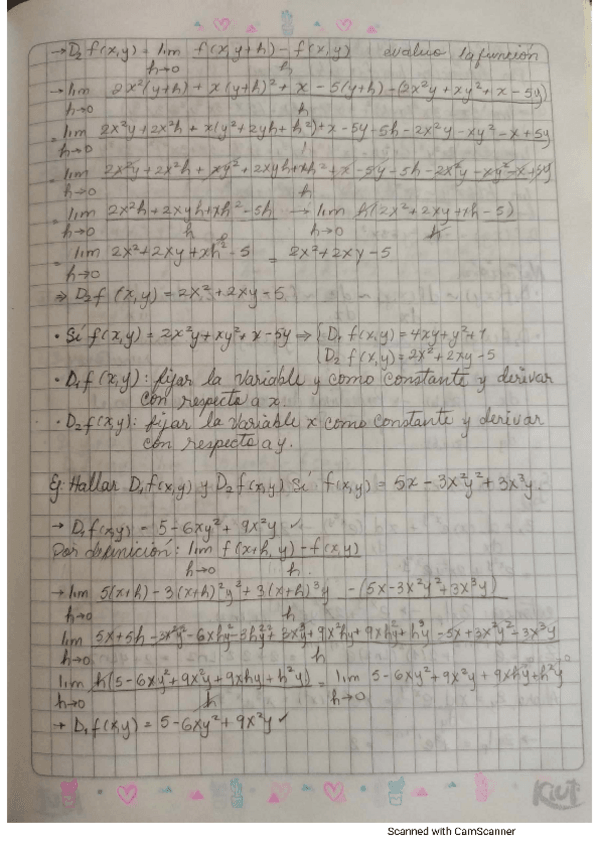 → D₂ f(x,y) = lim h→0 f(x,y+h) - f(x,y) / h evaluo la función
→ lim h→0 2x²(y+h) + x(y+h)² + x - 5(y+h) - (2x²y + xy² + x - 5y) / h
= lim h→0 2x²y + 2x²h + x(y² + 2yh + h²) + x - 5y - 5h - 2x²y - xy² - x + 5y / h
= lim h→0 2x²y + 2x²h + xy² + 2xyh + xh² + x - 5y - 5h - 2x²y - xy² - x + 5y / h
= lim h→0 2x²h + 2xyh + xh² - 5h / h → lim h→0 h(2x² + 2xy + xh - 5) / h
= lim h→0 2x² + 2xy + xh - 5 = 2x² + 2xy - 5
⇒ D₂f (x,y) = 2x² + 2xy - 5.
• Sí f(x,y) = 2x²y + xy² + x - 5y ⇒ { D₁ f(x,y) = 4xy + y² + 1
D₂ f(x,y) = 2x² + 2xy - 5
• D₁f (x,y): fijar la variable y como constante y derivar
con respecto a x.
• D₂f(x,y): fijar la variable x como constante y derivar
con respecto a y.
Ej: Hallar D₁f(x,y) y D₂f(x,y) Sí f(x,y) = 5x - 3x²y² + 3x³y.
→ D₁f(x,y) = 5 - 6xy² + 9x²y ✓
Por definición: lim h→0 f(x+h, y) - f(x,y) / h.
→ lim h→0 5(x+h) - 3(x+h)²y² + 3(x+h)³y - (5x - 3x²y² + 3x³y) / h
lim h→0 5x + 5h - 3x²y² - 6xhy² - 3h²y² + 3x³y + 9x²hy + 9xh²y + h³y - 5x + 3x²y² - 3x³y / h
lim h→0 h(5 - 6xy² + 9x²y + 9xhy + h²y) / h = lim h→0 5 - 6xy² + 9x²y + 9xhy + h²y
→ D₁f(x,y) = 5 - 6xy² + 9x²y ✓
Kiut
Scanned with CamScanner